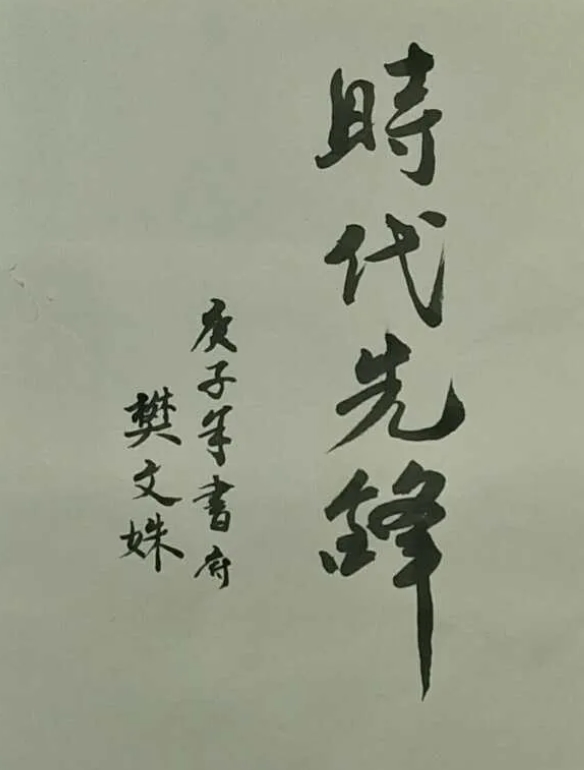 時代先鋒
庚子年書府
樊文姝